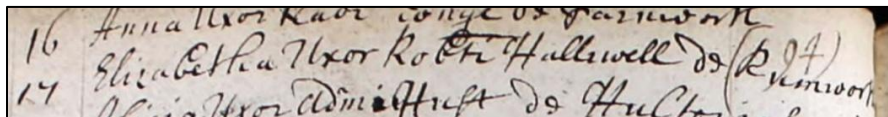 16 Anna Uxor Radi Longe de Farnworth
17 Elizabetha Uxor Robti Halliwell de (Rumworth
Uxor Admi Hust de Hulton